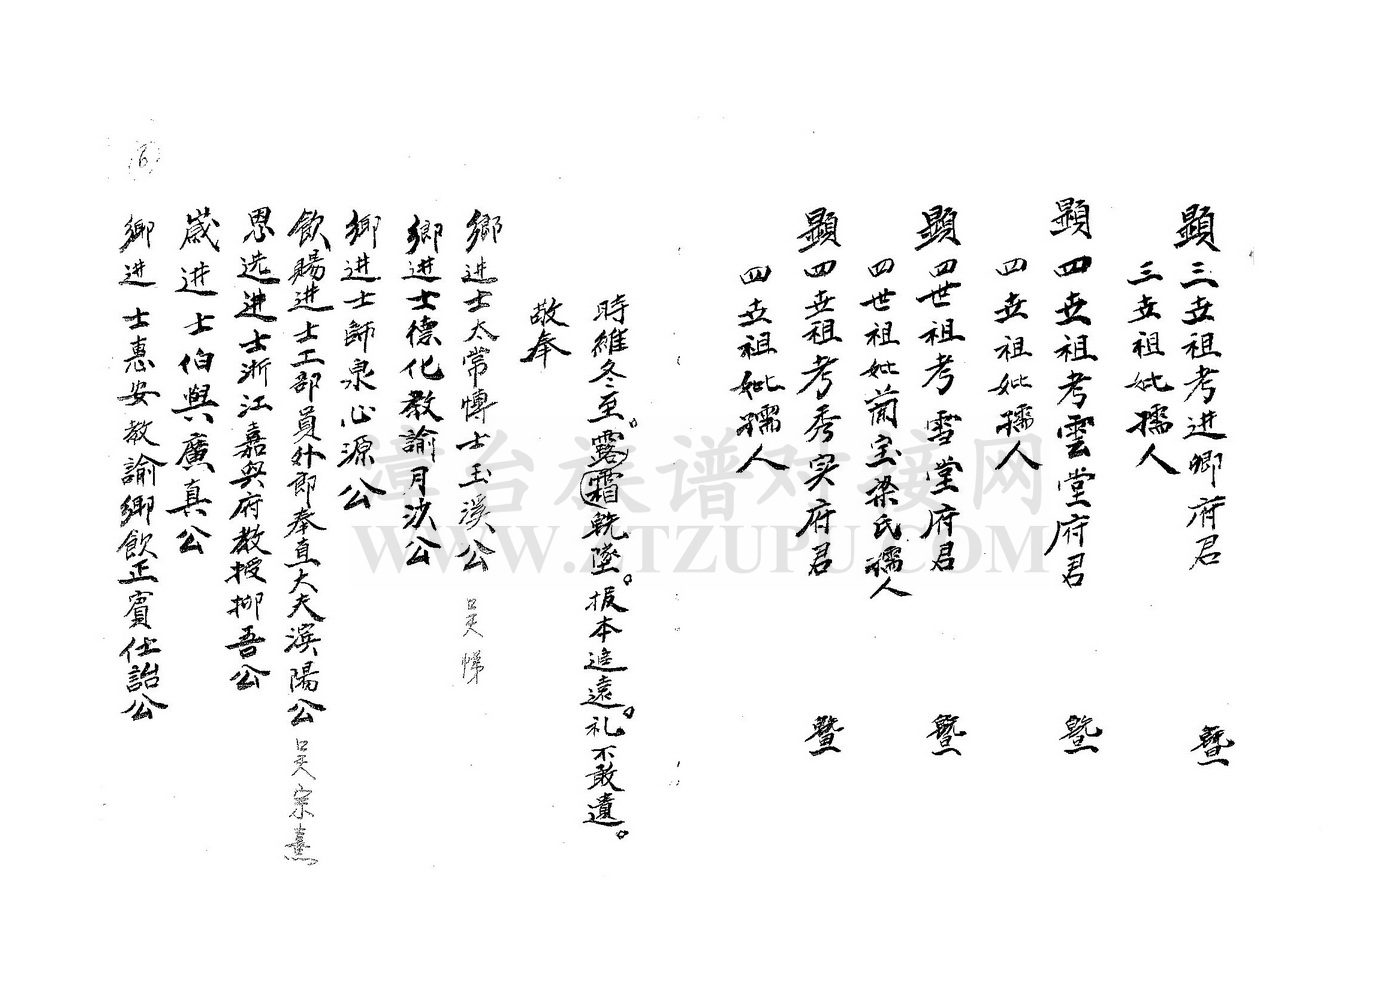 顯三世祖考進卿府君 暨
三世祖妣孺人
顯四世祖考雲堂府君 暨
四世祖妣孺人
顯四世祖考雪堂府君 暨
四世祖妣蘭室梁氏孺人
顯四世祖考秀实府君 暨
四世祖妣孺人
時維冬至。露霜既墜。报本追遠。礼不敢遺。
敬奉
鄉进士太常博士玉溪公 吴悌
鄉进士德化教諭月沙公
鄉进士師泉心源公
飲賜进士工部員外郎奉直大夫滨陽公 吴宗熹
恩选进士浙江嘉興府教授柳吾公
歲进士伯與廣真公
鄉进士惠安教諭鄉飲正賓仕詒公
6
漳台族谱对接网
WWW.ZTZUPU.COM